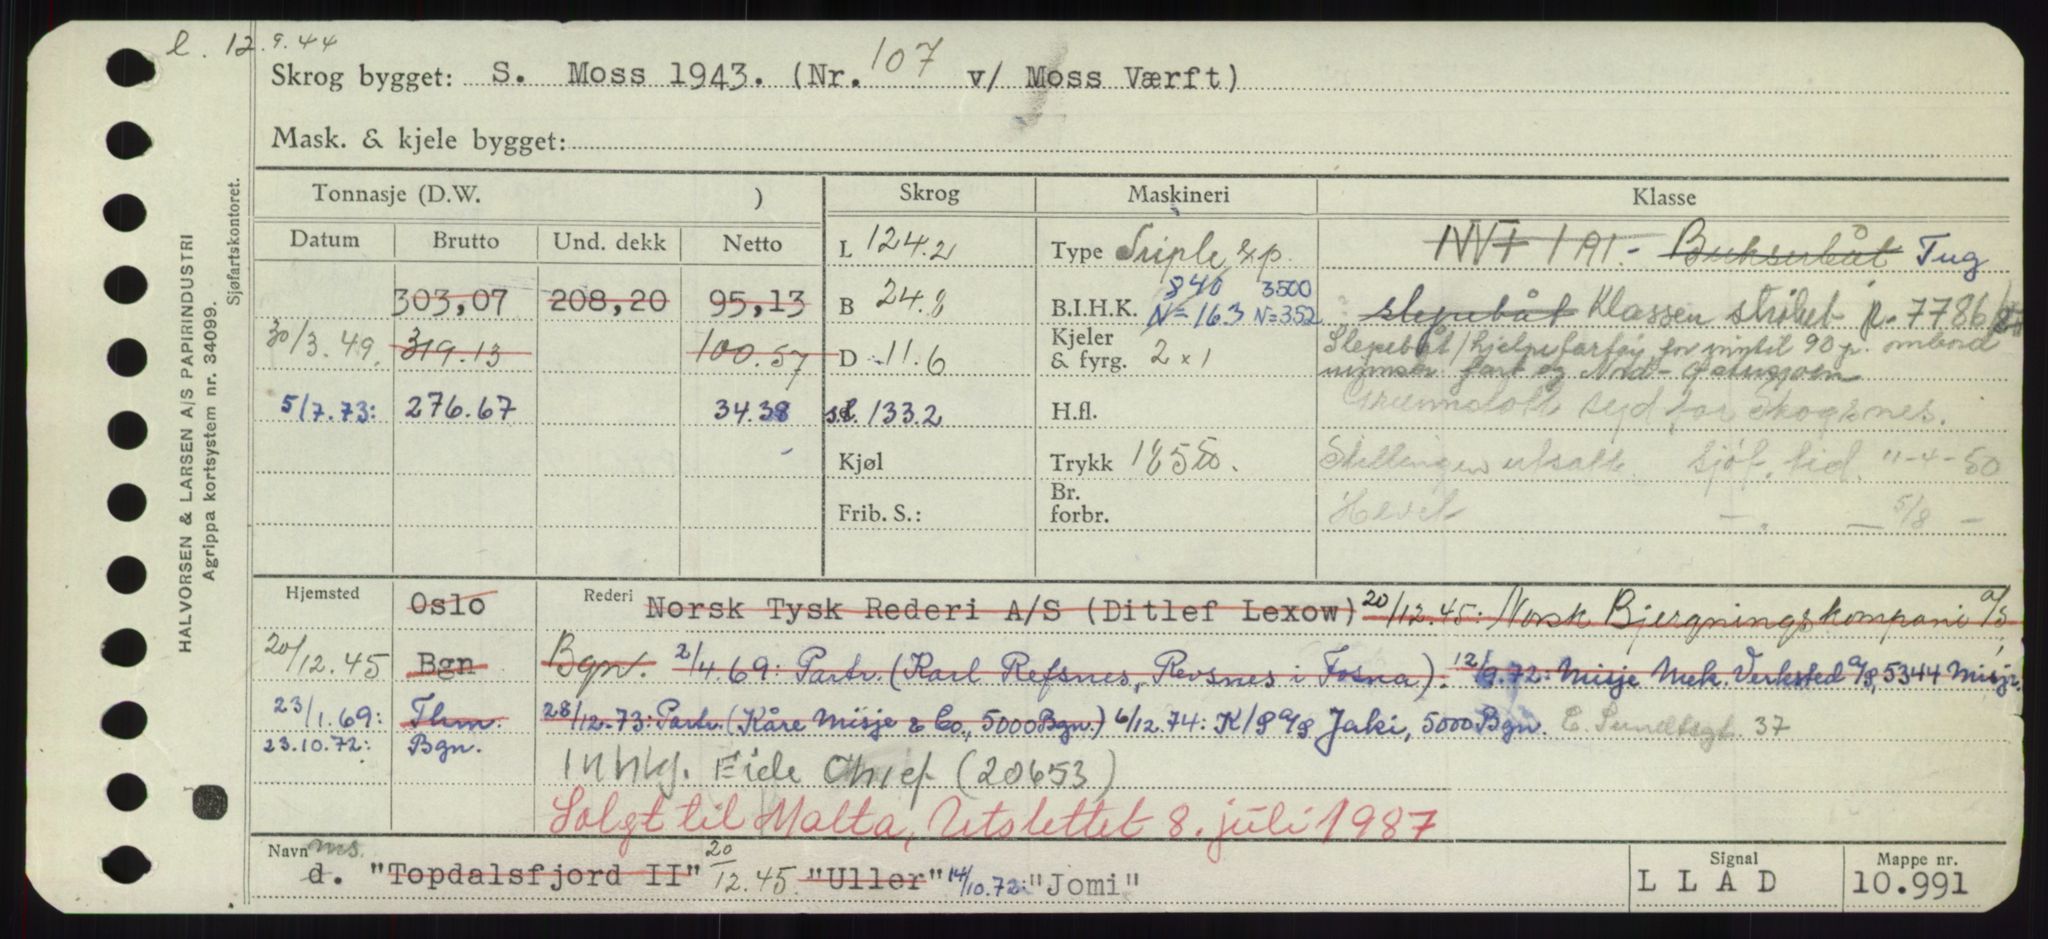 l. 12.9.44
Skrog bygget: S. Moss 1943. (Nr. 107 v/ Moss Værft)
Mask. & kjele bygget:
HALVORSEN & LARSEN A/S PAPIRINDUSTRI
Agrippa kortsystem nr. 34099.
Sjøfartskontoret.
Tonnasje (D.W. ) Skrog Maskineri Klasse
Datum Brutto Und. dekk Netto
L 124.2 Type Triple exp. NVT 1A1.- Bukserbåt Tug
303,07 208,20 95,13 B 24.8 B.I.H.K. 840 N=163 3500 N=352 slepebåt Klassen strøket p. 7786
30/3.49. 319.13 100.57 D 11.6 Kjeler & fyrg. 2 x 1 Slepebåt/hjelpefartøy for inntil 90 p. ombord
fart og Nord- Østersjøen
5/7.73: 276.67 34.38 s.l. 133.2 H.fl. syd for Skogsnes.
Kjøl Trykk 185 Stillingen utsatt. Sjøf. tid. 11-4-50
Frib. S.: Br. forbr. Hevet - " - 5/8 -
Hjemsted Oslo Rederi Norsk Tysk Rederi A/S (Ditlef Lexow) 20/12.45: Norsk Bjergningskompani a/s,
20/12.45 Bgn Bgn. 2/4.69: Partr. (Karl Refsnes, Revsnes i Fosna). 12/9.72: Misje Mek. Verksted a/s, 5344 Misje.
23/1.69: Thm. 28/12-73: Partr. (Kåre Misje & Co., 5000 Bgn.) 6/12.74: K/S a/s Jaki, 5000 Bgn. E. Sundtsgt. 37
23.10.72: Bgn.
Innkj. Eide Chief (20653)
Solgt til Malta, Utslettet 8. juli 1987
Navn ms. Signal Mappe nr.
d. "Topdalsfjord II" 20/12.45. "Uller" 14/10.72: "Jomi" L L A D 10.991